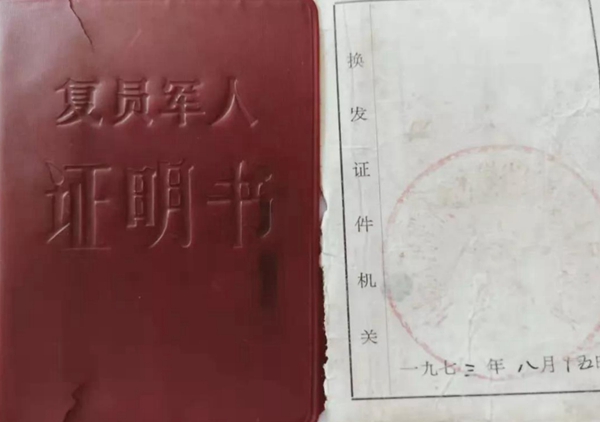 复员军人
证明书
换发证件机关
一九七三年八月十五日